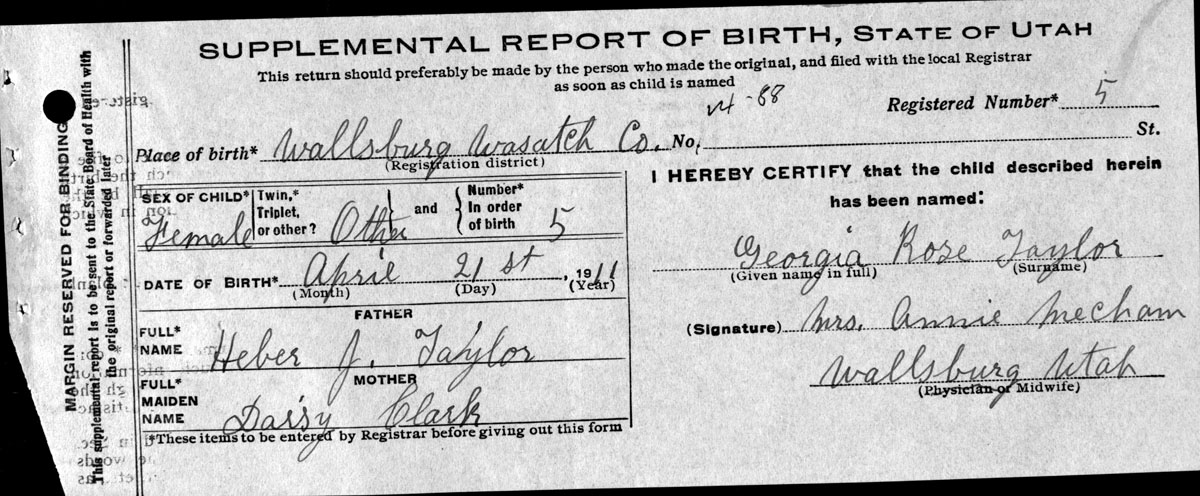 SUPPLEMENTAL REPORT OF BIRTH, STATE OF UTAH
This return should preferably be made by the person who made the original, and filed with the local Registrar
as soon as child is named
Registered Number* 5
Place of birth* Wallsburg Wasatch Co. No. St.
(Registration district)
SEX OF CHILD* Female
Twin, Triplet, or other? Other
and
Number* In order of birth 5
DATE OF BIRTH* April 21st, 1911
(Month) (Day) (Year)
FATHER
FULL* NAME Heber J. Taylor
MOTHER
FULL* MAIDEN NAME Daisy Clark
*These items to be entered by Registrar before giving out this form
I HEREBY CERTIFY that the child described herein
has been named:
Georgia Rose Taylor
(Given name in full) (Surname)
(Signature) Mrs. Annie Mecham
Wallsburg Utah
(Physician or Midwife)
MARGIN RESERVED FOR BINDING
This supplemental report is to be sent to the State Board of Health with
the original report or forwarded later